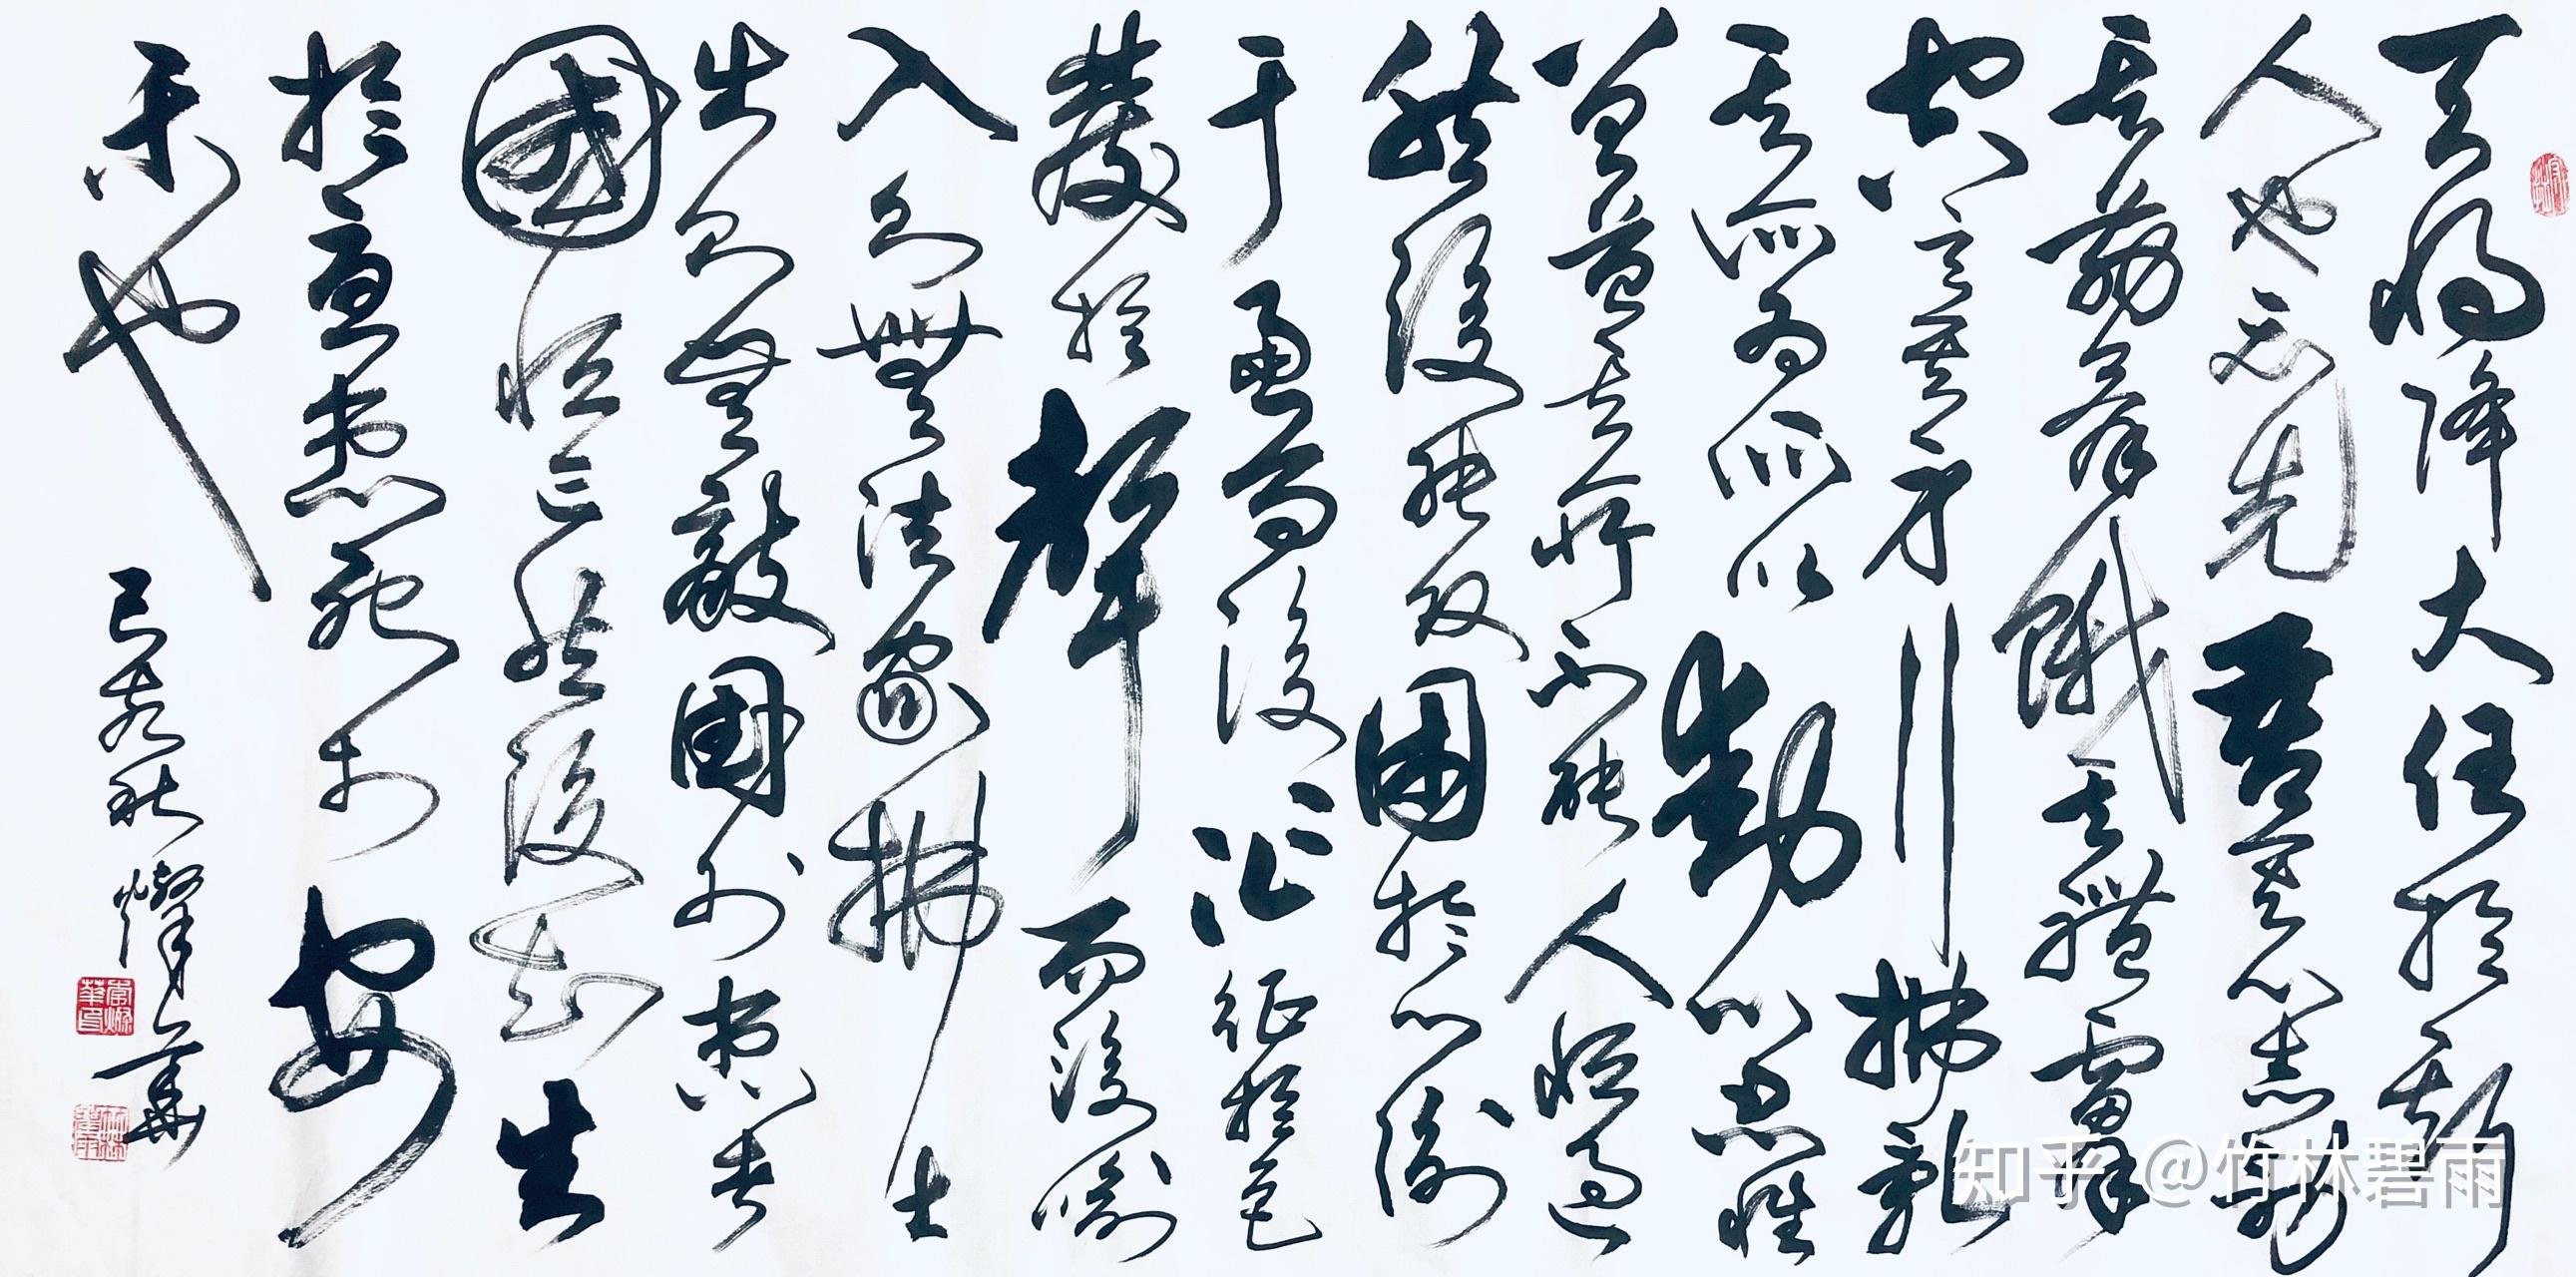 天將降大任於斯
人也必先苦其心志勞
其筋骨餓其體膚
空乏其身行拂亂
其所為所以動心忍性
曾益其所不能人恆過
然後能改困於心衡
于慮而後作征於色
發於聲而後喻
入則無法家拂士
出則無敵國外患者
國恆亡然後知生
於憂患死於安
樂也
己亥秋燦華
知乎 @竹林碧雨